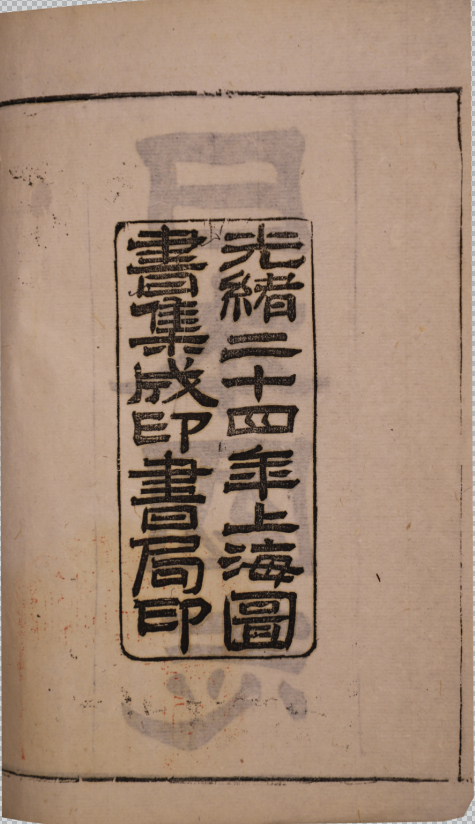 光緒二十四年上海圖
書集成印書局印